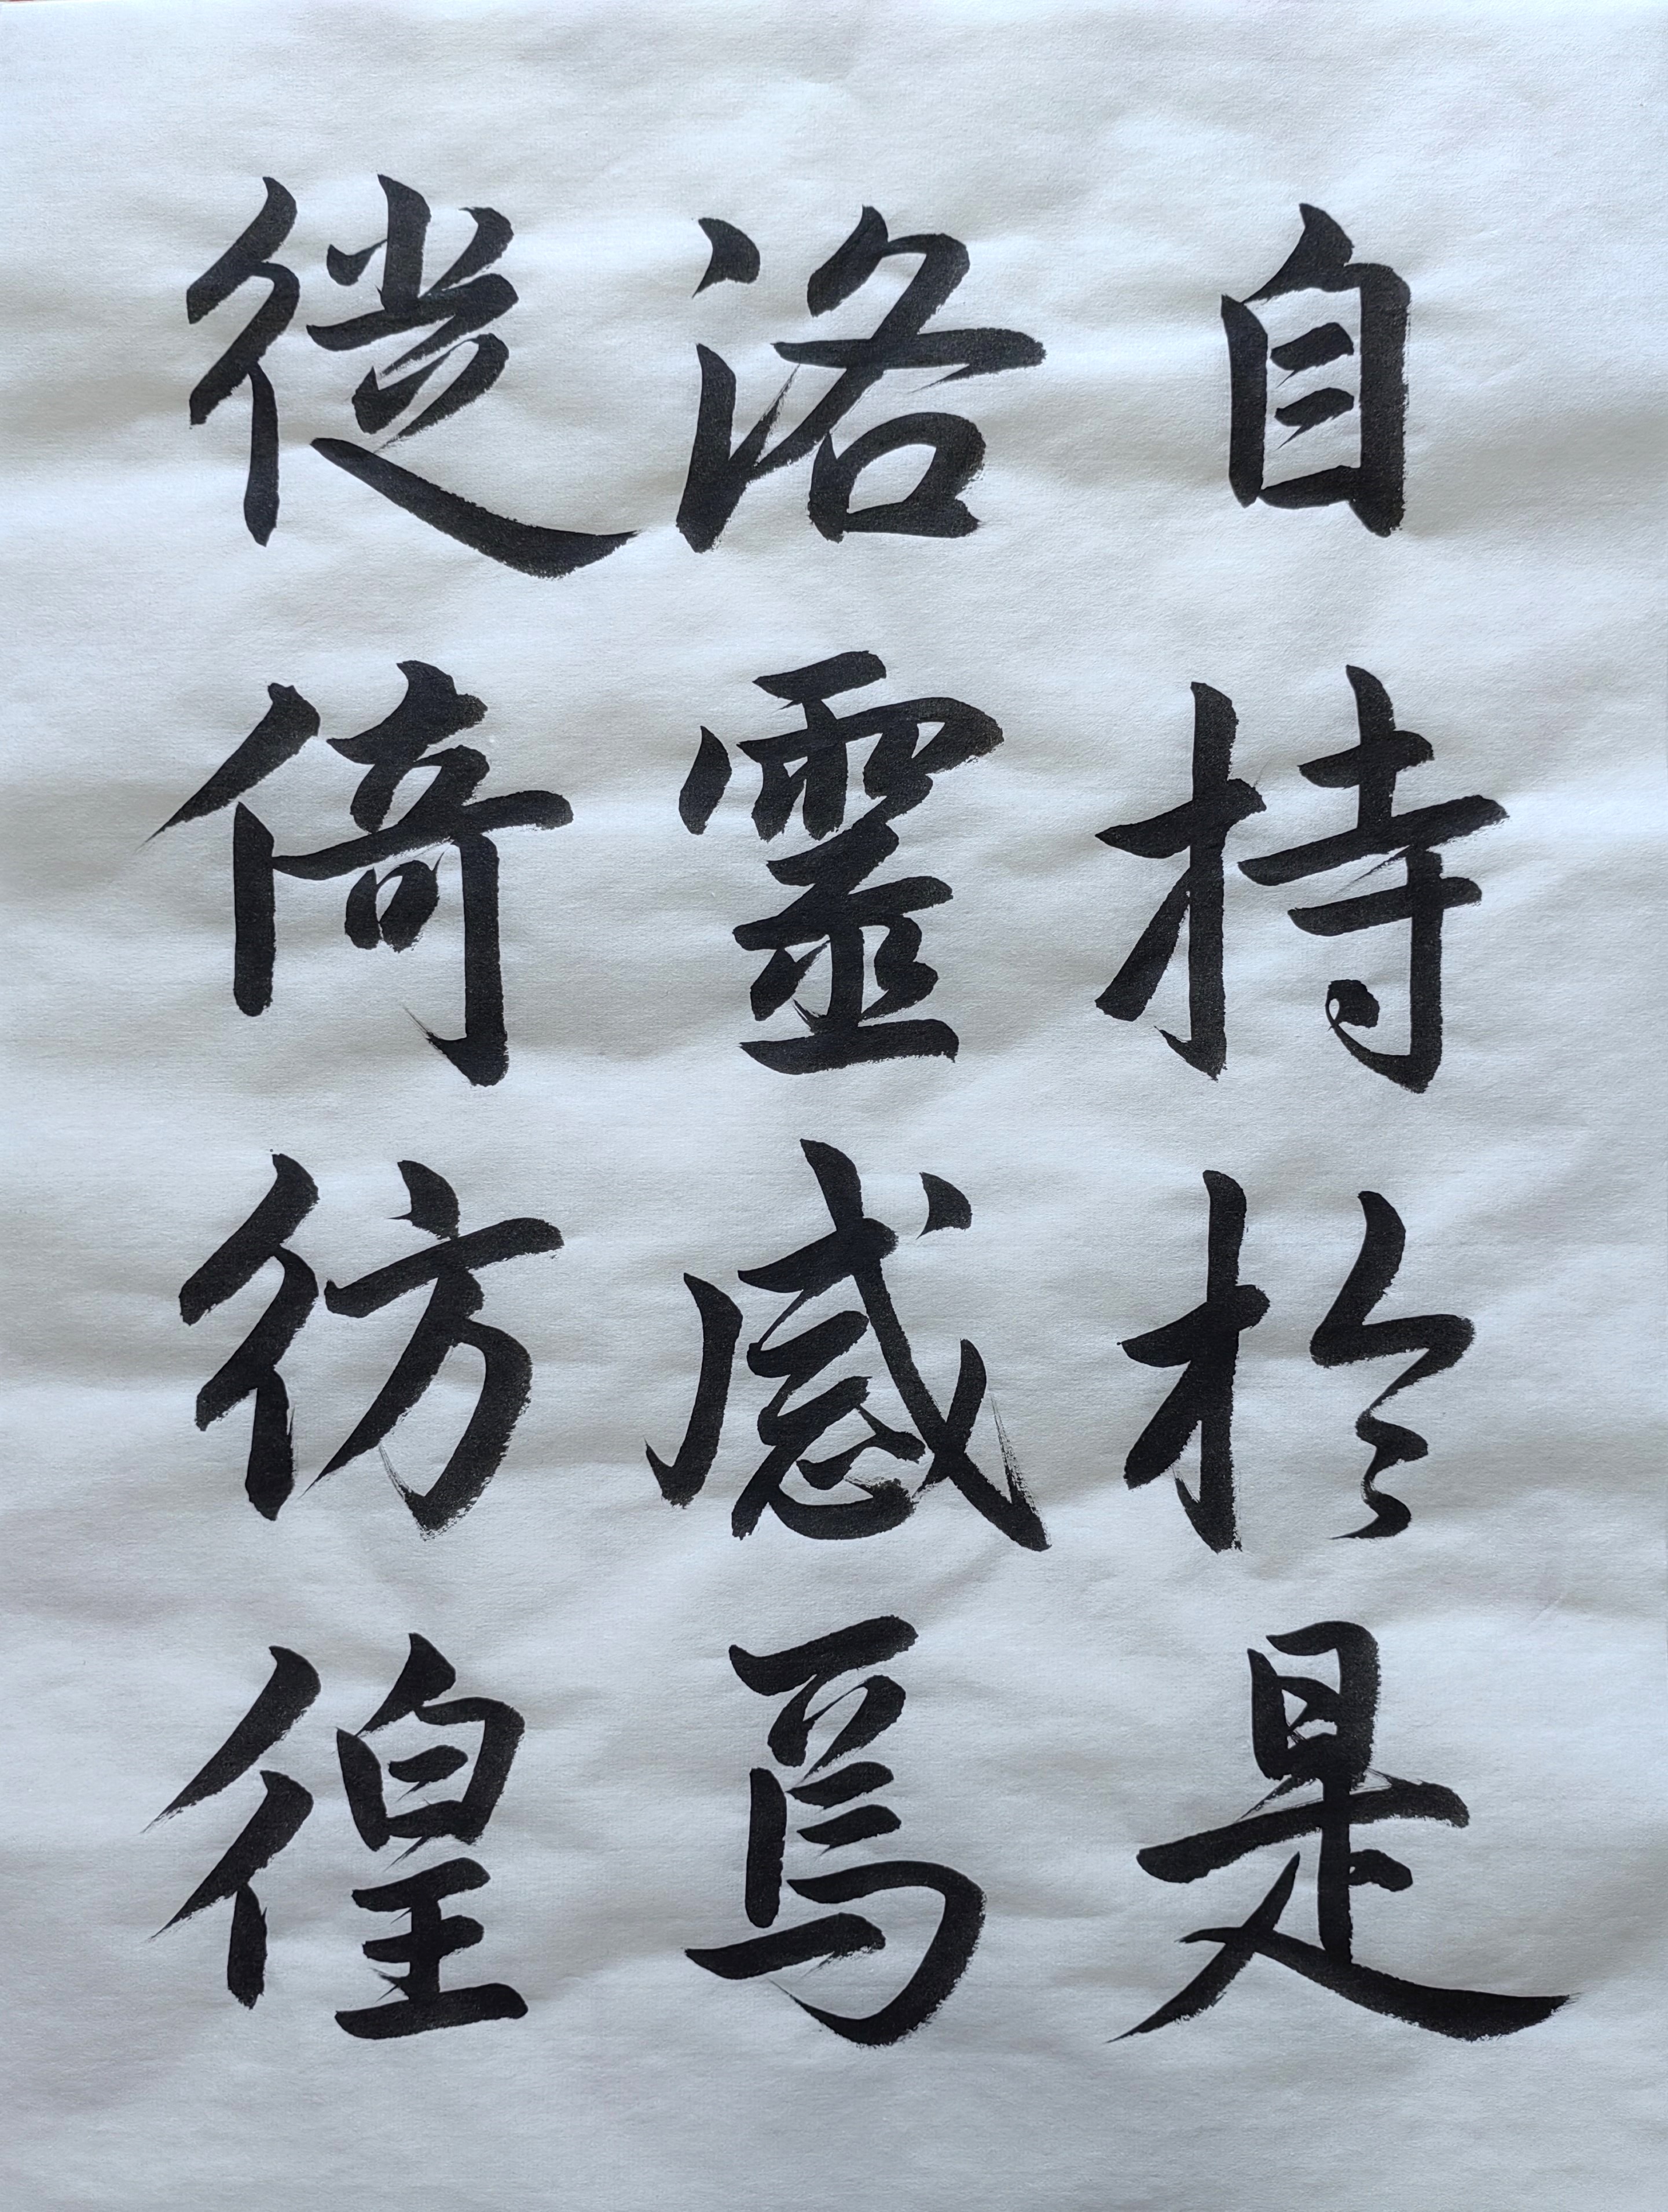 自持於是
洛靈感焉
徙倚彷徨